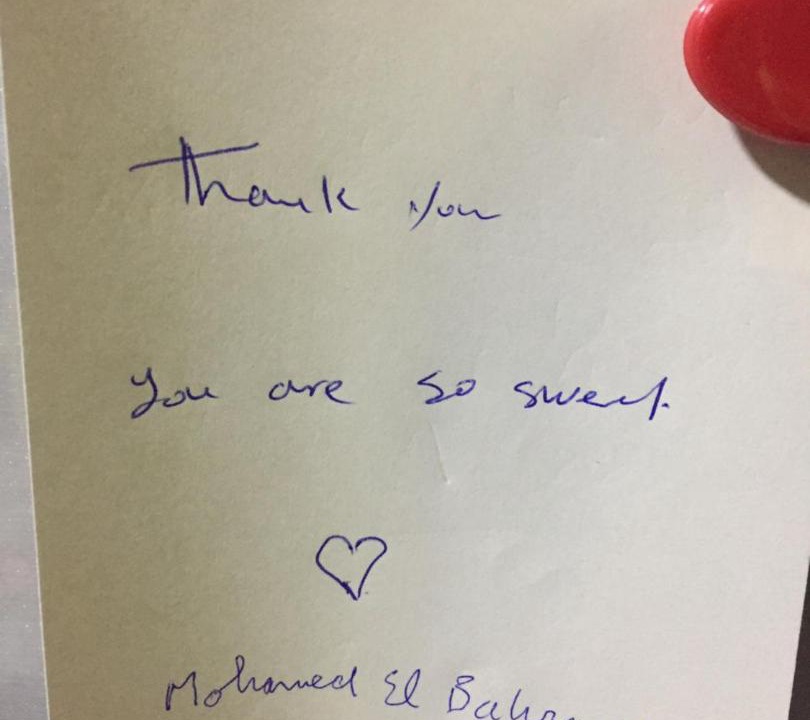 Thank you
you are so sweet.
Mohamed El